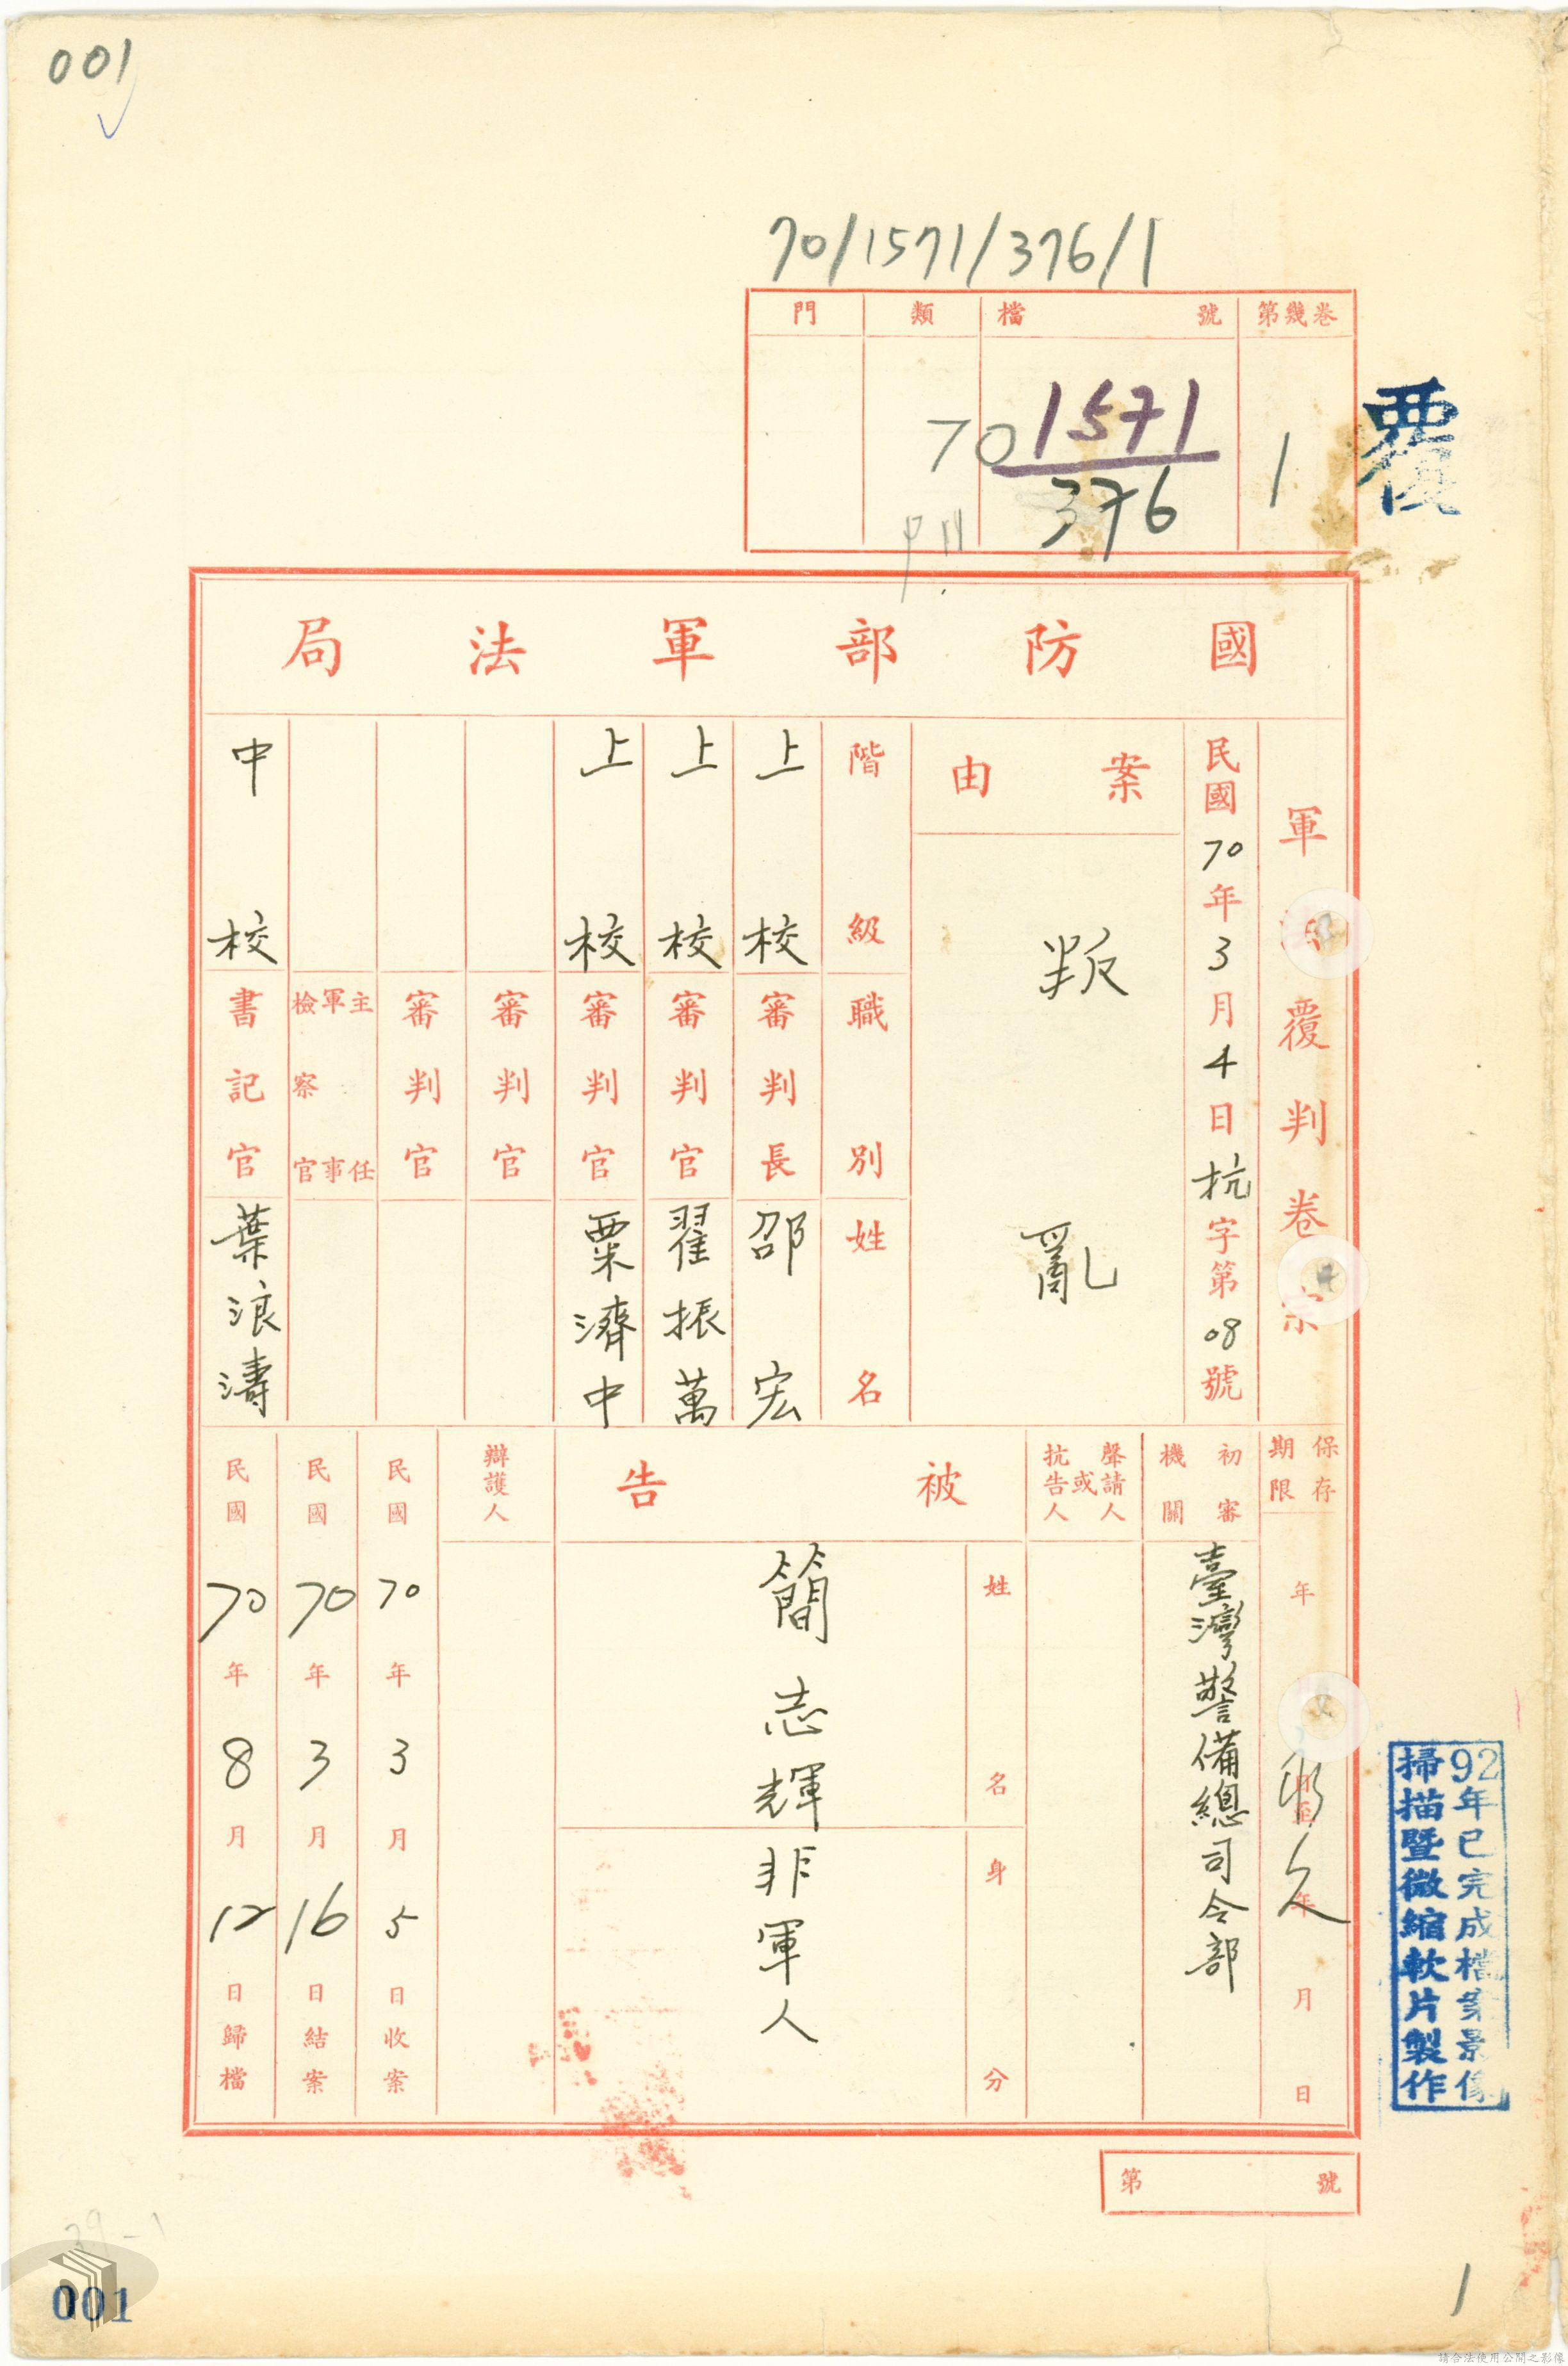 001
70/1571/376/1
門 類 檔號 第幾卷
70 1571 1
376
覆
國防部軍法局
軍 覆判卷宗
民國70年3月4日抗字第08號
案由
叛亂
階級 職別 姓名
上校 審判長 邵宏
上校 審判官 翟振萬
上校 審判官 粟濟中
審判官
審判官
主任軍事檢察官
中校 書記官 葉浪濤
保存期限
年
日至
年
月
日
永久
初審機關
臺灣警備總司令部
聲請人或抗告人
被告
姓名
簡志輝
身分
非軍人
辯護人
民國70年3月5日收案
民國70年3月16日結案
民國70年8月12日歸檔
92年已完成檔案影像
掃描暨微縮軟片製作
第 號
39-1
001
1
請合法使用公開之影像